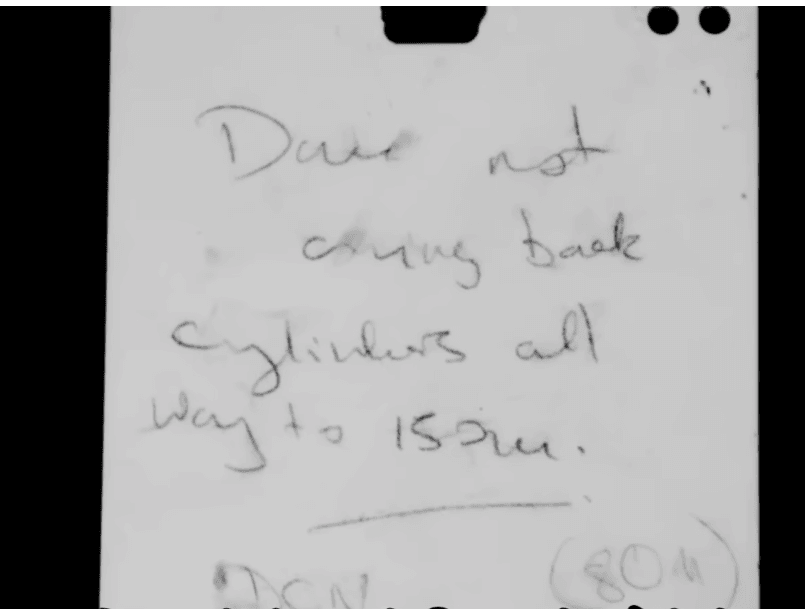 Dave not
coming back
cylinders all
way to 150m.
DCN (80m)